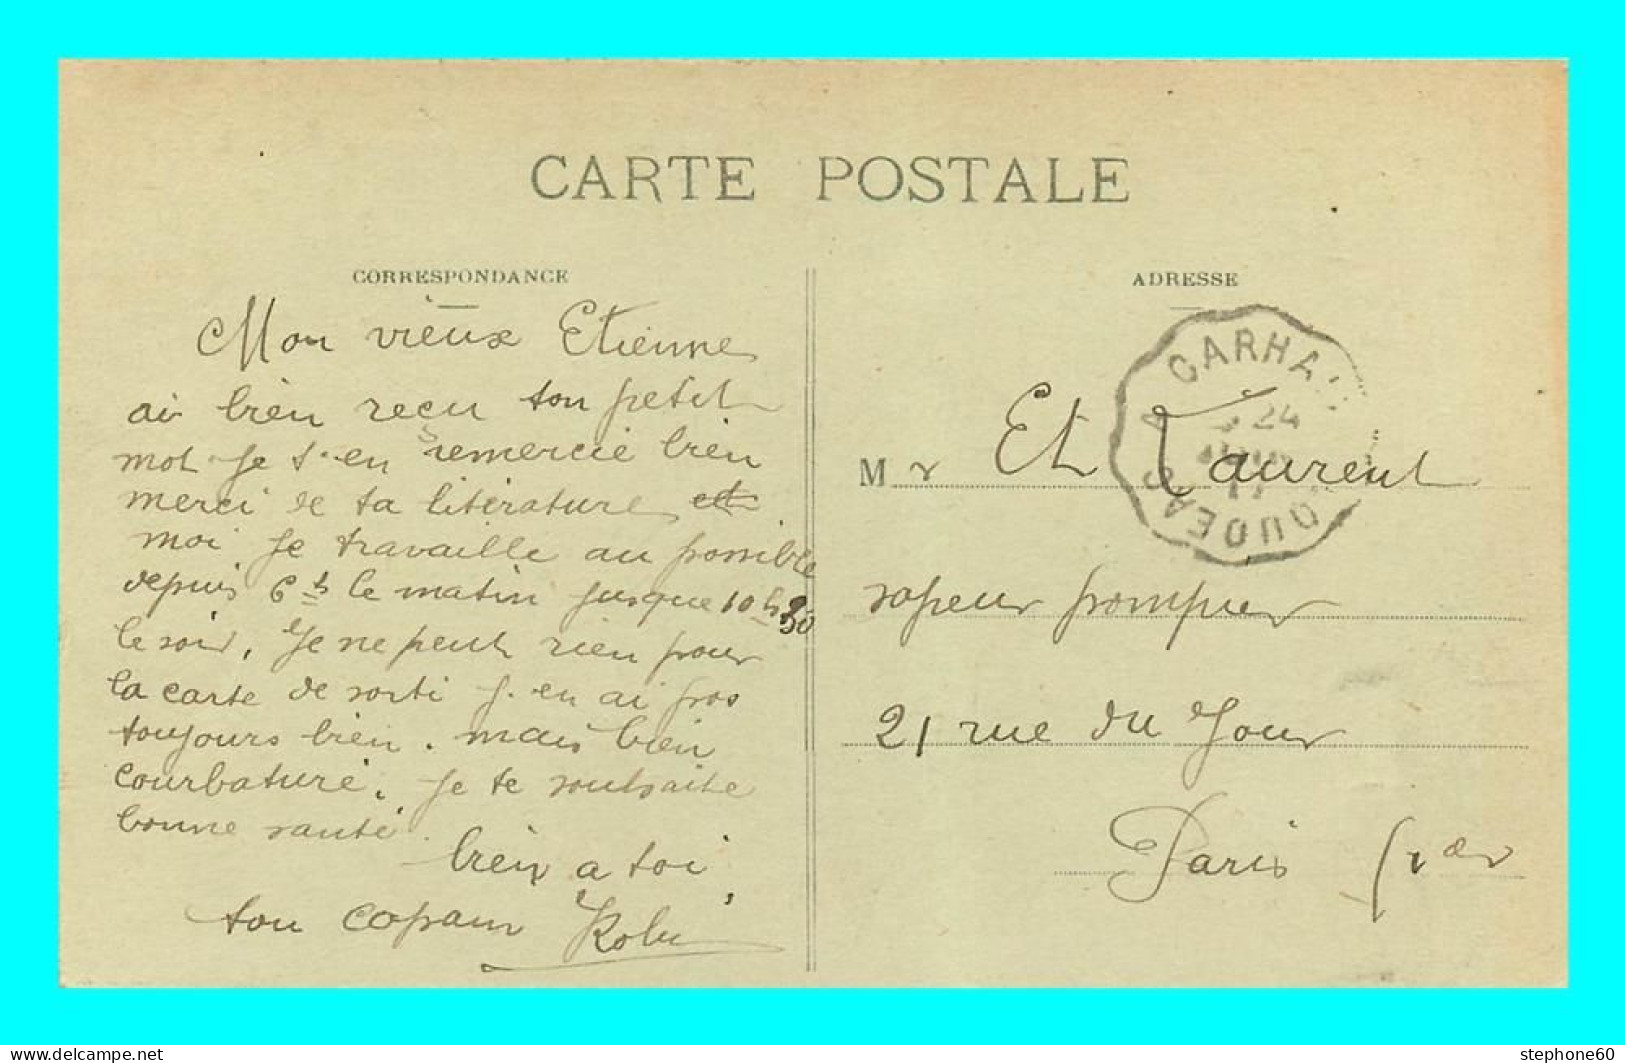 CARTE POSTALE
CORRESPONDANCE
Mon vieux Etienne
ai bien reçu ton petit
mot je t'en remercie bien
merci de ta litérature et
moi je travaille au possible
depuis 6 hs le matin jusque 10 hs 30
le soir, Je ne peut rien pour
la carte de sorti j'en ai pas
toujours bien. mais bien
courbaturé. je te souhaite
bonne santé.
bien a toi,
ton copain Robi
ADRESSE
CARHAI
A
24
17
OUDEAC
Mr Et Laurent
sapeur pompier
21 rue du Jour
Paris (1er
stephone60